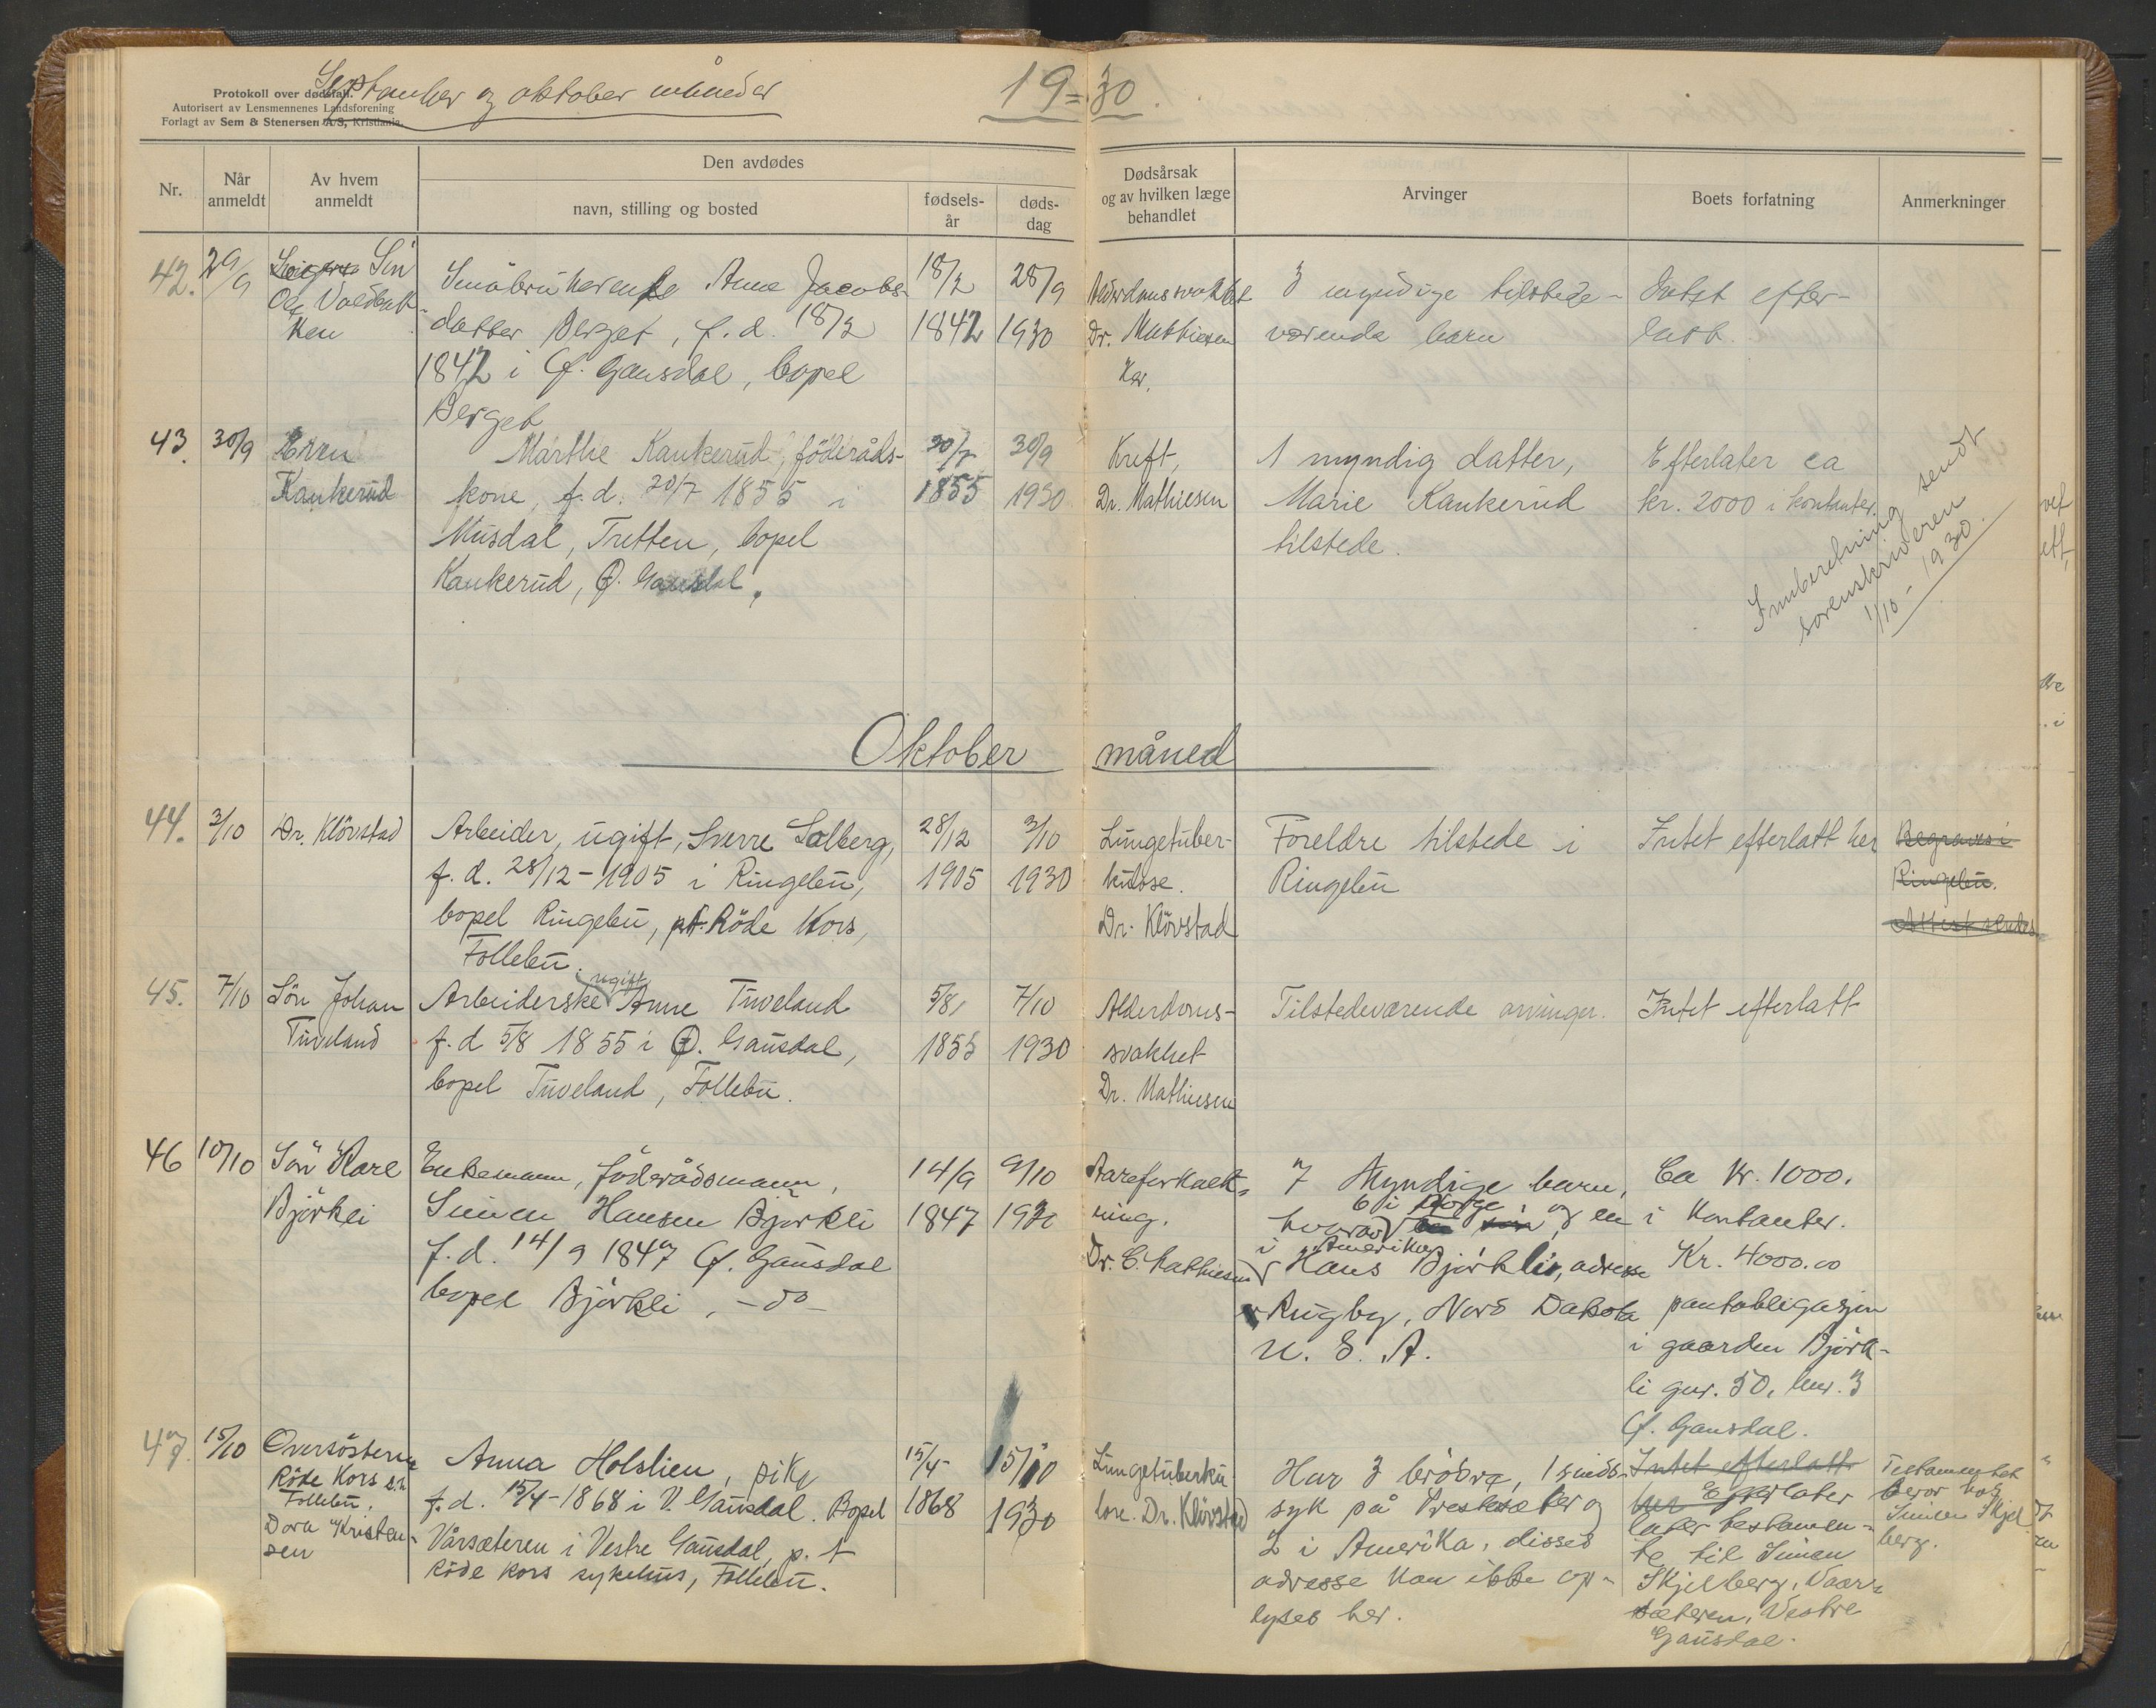 September og oktober måneder
19=30.
Protokoll over dødsfall.
Autorisert av Lensmennenes Landsforening
Forlagt av Sem & Stenersen A/S, Kristiania.
Nr.
Når anmeldt
Av hvem anmeldt
Den avdødes
navn, stilling og bosted
fødsels-år
døds-dag
Dødsårsak og av hvilken læge behandlet
Arvinger
Boets forfatning
Anmerkninger
42.
29/9
Svigers. Sön
Ole
ken
Småbrukerenke Anne Jacobs-
datter Berget, f.d. 18/2
1842 i Ø. Gausdal, bopel
Berget
18/2
1842
28/9
1930
Alderdomssvakhet
Dr. Mathiesen
3 myndige tilstede-
værende barn
Intet efter-
latt.
43.
30/9
Kankerud
Marthe Kankerud, föderåds-
kone, f.d. 20/7 1855 i
Musdal, Tretten, bopel
Kankerud, Ø. Gausdal.
20/7
1855
30/9
1930
Kreft,
Dr. Mathiesen
1 myndig datter,
Marie Kankerud
tilstede.
Efterlater ca
kr. 2000 i kontanter.
Innberetning sendt
sorenskriveren
1/10-1930.
Oktober måned
44.
3/10
Dr. Klövstad
Arbeider, ugift, Sverre Solberg,
f.d. 28/12-1905 i Ringebu,
bopel Ringebu, pt. Röde Kors,
Follebu.
28/12
1905
3/10
1930
Lungetuber-
kulose.
Dr. Klövstad
Foreldre tilstede i
Ringebu
Intet efterlatt her
Begraves i
Ringebu.
Attest sendes
45.
7/10
Sön Johan
Tuveland
Arbeiderske ugift Anne Tuveland
f.d 5/8 1855 i Ø. Gausdal,
bopel Tuveland, Follebu.
5/8
1855
7/10
1930
Alderdoms-
svakhet
Dr. Mathiesen
Tilstedeværende arvinger.
Intet efterlatt
46
10/10
Sön Kare
Björkli
Enkemann, föderådsmann,
Simen Hansen Björkli
f.d. 14/9 1847 Ø. Gausdal
bopel Björkli, -do-
14/9
1847
9/10
1930
Aareforkalk-
ning.
Dr. C. Mathiesen
7 Myndige barn,
6 i Norge
hvorav og en
i Amerika
Hans Björkli, adresse
Rugby, Nord Dakota
U. S. A.
Ca Kr. 1000.
i Kontanter.
Kr. 4000.00
pantobligasjon
i gaarden Björk-
li gnr. 50, bnr. 3
Ø. Gausdal.
47.
15/10
Oversösteren
Röde Kors s.h.
Follebu.
Dora Kristen-
sen
Anna Holslien, pike
f.d. 15/4-1868 i V. Gausdal. Bopel
Vårsæteren i Vestre Gausdal, p. t
Röde Kors sykehus, Follebu.
15/4-
1868
15/10
1930
Lungetuberku-
lose. Dr. Klövstad
Har 3 brödre, 1 sinds-
syk på Prestesæter og
2 i Amerika, disses
adresse kan ikke op-
lyses her.
Intet efterlatt
her Efterlater
later testamen-
te til Simen
Skjelberg, Vaar-
sæteren, Vestre
Gausdal.
Testamentet
beror hos
Simen Skjel
berg.